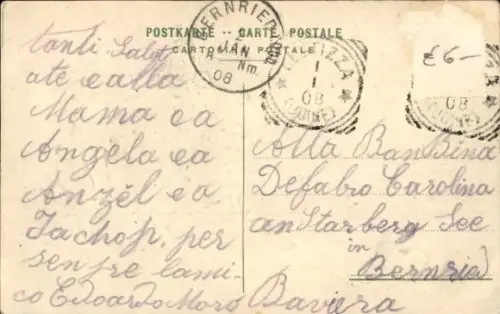 POSTKARTE -- CARTE POSTALE
CARTOLINA POSTALE
BERNRIED
JAN
Nm.
08
1
1
08
(UDINE)
£6-
08
(UDINE)
tanti Salut
ate ealla
Mama ea
Angela ea
Anzel ea
Jachop. per
senpre lami-
co Edoardo Moro
Alla BanBina
Defabro Carolina
an Starberg See
in
Bernried
Baviera